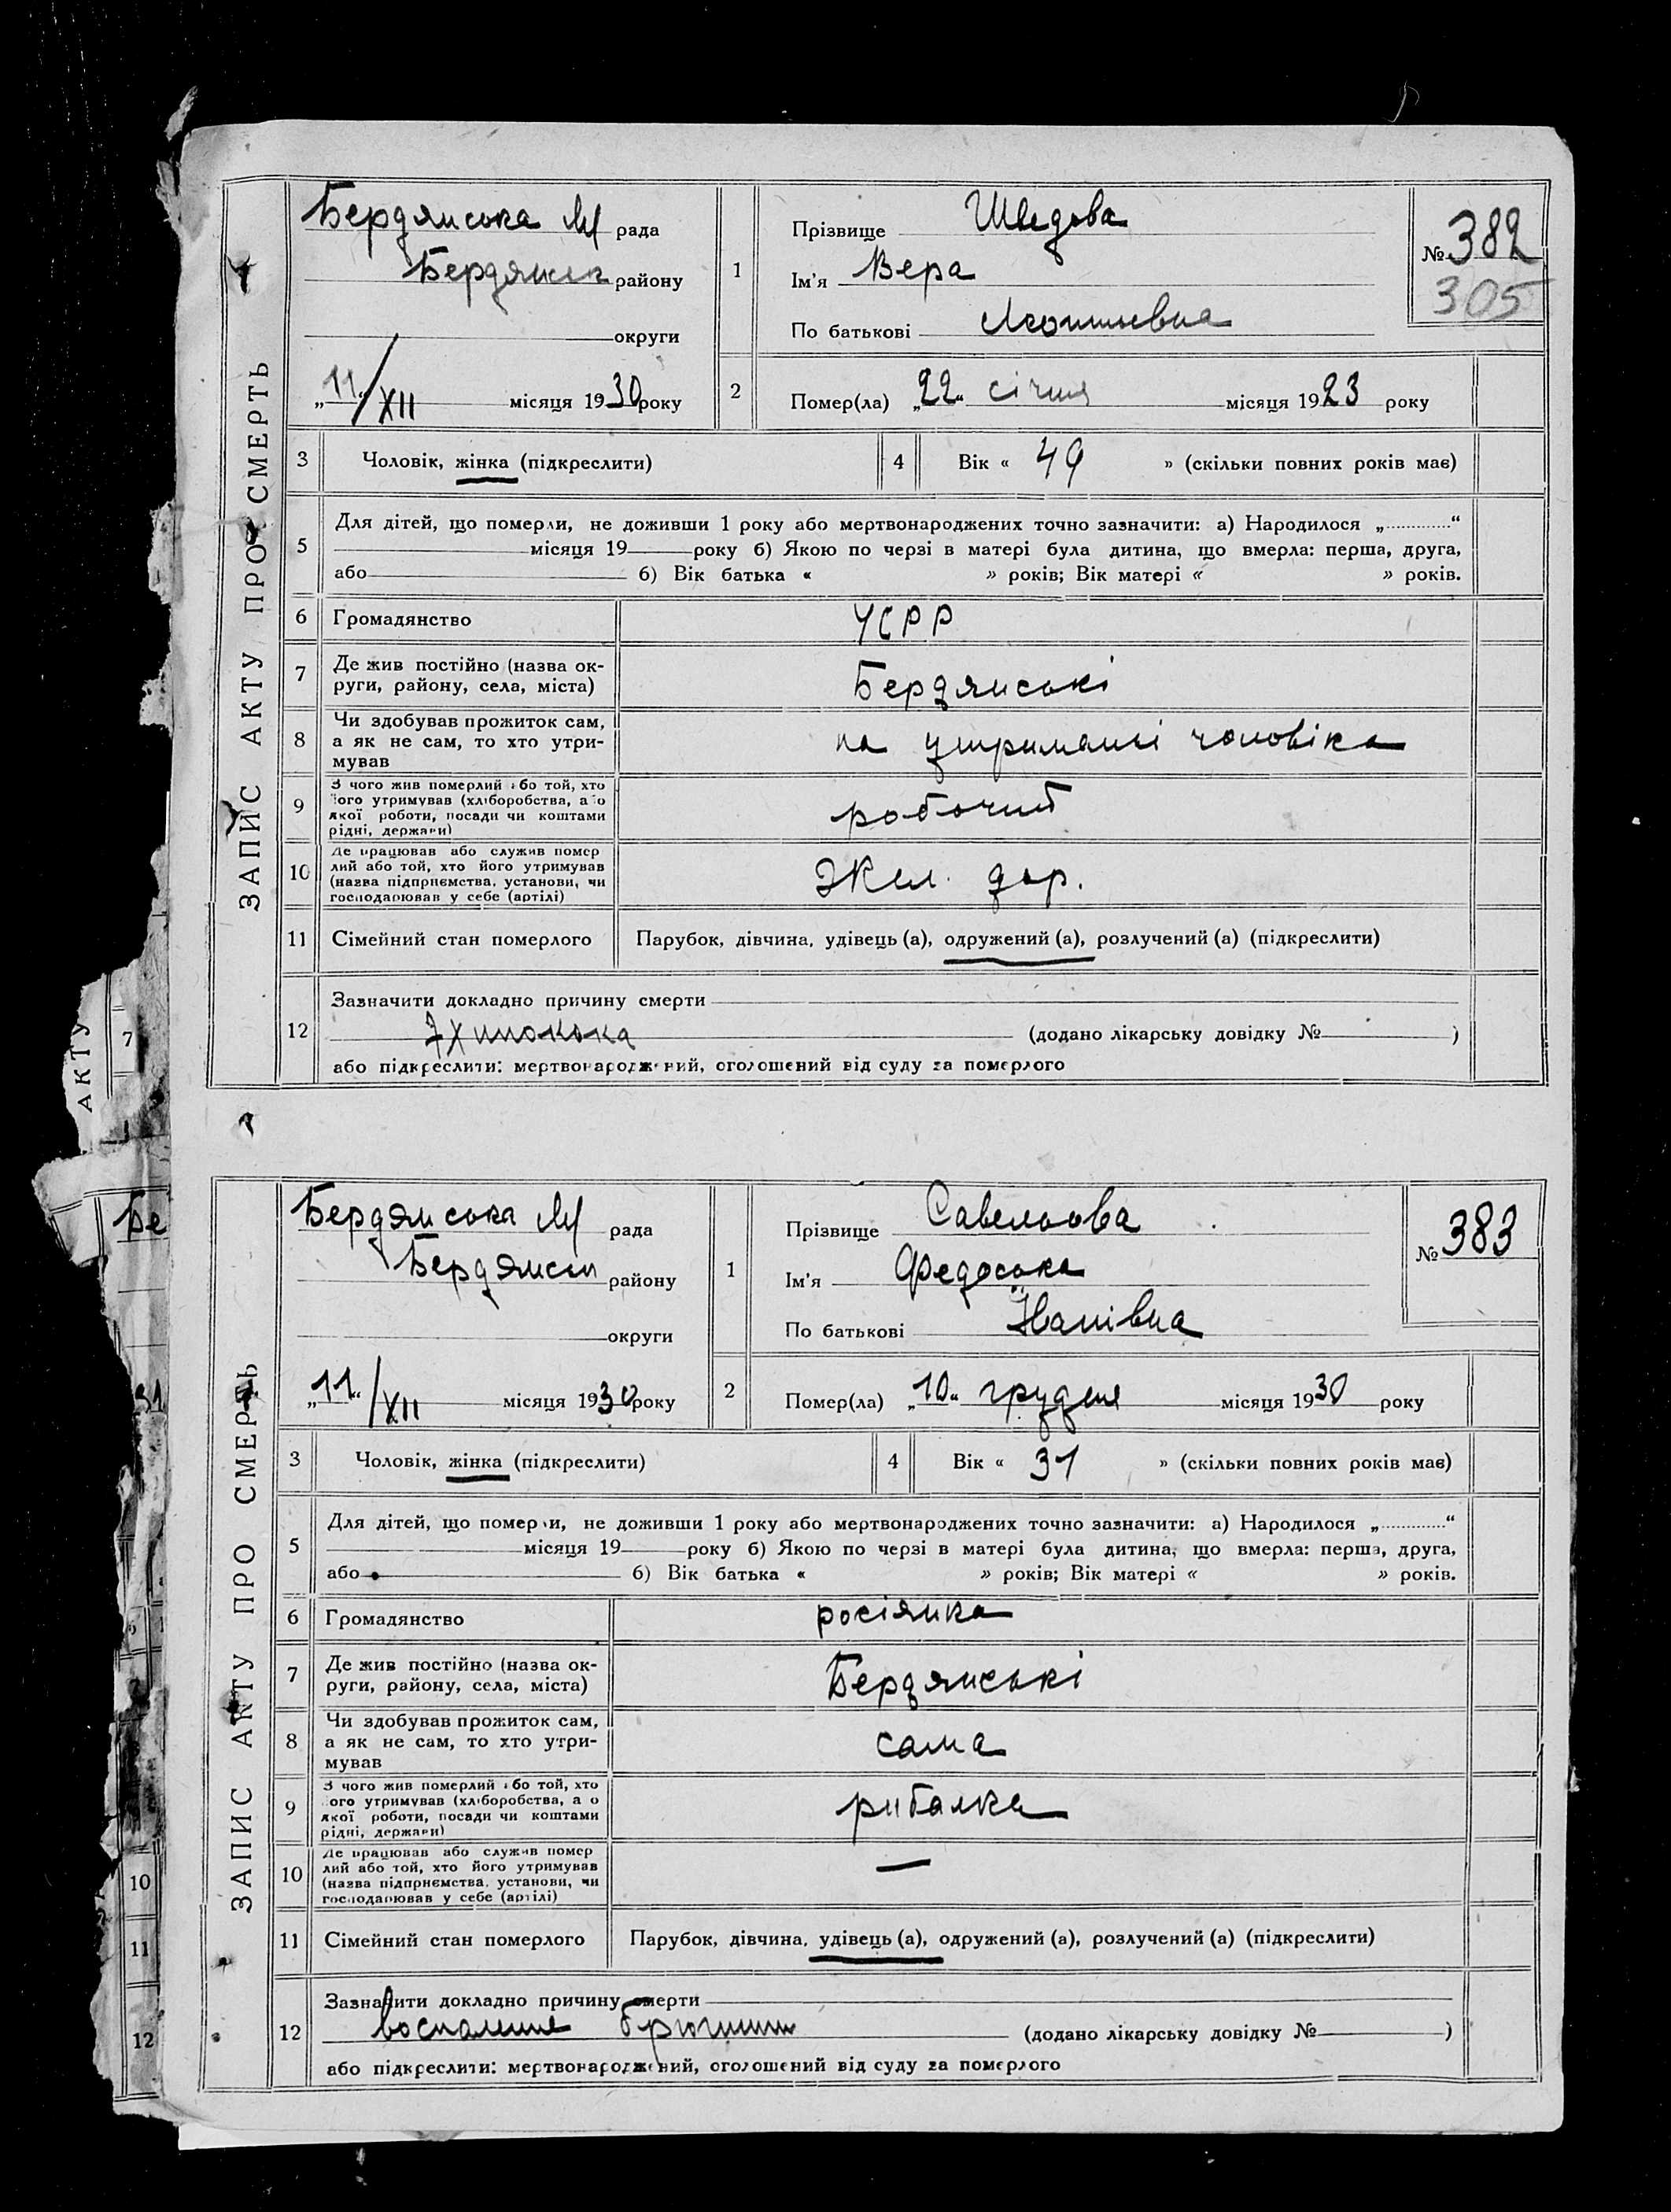 ЗАПИС АКТУ ПРО СМЕРТЬ
Бердянська М рада
Бердянськ району
округи
„11“/XII місяця 1930 року
1
Прізвище Шведова
Ім'я Вера
По батькові
№ 382
305
2
Помер(ла) „22“ січня місяця 1923 року
3 Чоловік, жінка (підкреслити)
4 Вік « 49 » (скільки повних років має)
5
Для дітей, що померли, не доживши 1 року або мертвонароджених точно зазначити: а) Народилося „............“
місяця 19 року б) Якою по черзі в матері була дитина, що вмерла: перша, друга,
або б) Вік батька « » років; Вік матері « » років.
6 Громадянство УСРР
7 Де жив постійно (назва ок-
руги, району, села, міста)
Бердянські
8 Чи здобував прожиток сам,
а як не сам, то хто утри-
мував
на утриманні чоловіка
9 З чого жив померлий або той, хто
його утримував (хліборобства, або
якої роботи, посади чи коштами
рідні, держави)
робочий
10 Де працював або служив помер
лий або той, хто його утримував
(назва підприємства, установи, чи
господарював у себе (артілі)
Жел. дор.
11 Сімейний стан померлого Парубок, дівчина, удівець (а), одружений (а), розлучений (а) (підкреслити)
12 Зазначити докладно причину смерти
Эхинокока (додано лікарську довідку № )
або підкреслити: мертвонароджений, оголошений від суду за померлого
АКТУ
7
ЗАПИС АКТУ ПРО СМЕРТЬ
Бердянська М рада
Бердянськ району
округи
„11“/XII місяця 1930 року
1
Прізвище Савельова
Ім'я Федоська
По батькові
№ 383
2
Помер(ла) „10“ грудня місяця 1930 року
3 Чоловік, жінка (підкреслити)
4 Вік « 31 » (скільки повних років має)
5
Для дітей, що померли, не доживши 1 року або мертвонароджених точно зазначити: а) Народилося „............“
місяця 19 року б) Якою по черзі в матері була дитина, що вмерла: перша, друга,
або б) Вік батька « » років; Вік матері « » років.
6 Громадянство росіянка
7 Де жив постійно (назва ок-
руги, району, села, міста)
Бердянські
8 Чи здобував прожиток сам,
а як не сам, то хто утри-
мував
сама
9 З чого жив померлий або той, хто
його утримував (хліборобства, або
якої роботи, посади чи коштами
рідні, держави)
рибалка
10 Де працював або служив помер
лий або той, хто його утримував
(назва підприємства, установи, чи
господарював у себе (артілі)
—
11 Сімейний стан померлого Парубок, дівчина, удівець (а), одружений (а), розлучений (а) (підкреслити)
12 Зазначити докладно причину смерти
воспаление брюшины (додано лікарську довідку № )
або підкреслити: мертвонароджений, оголошений від суду за померлого
Бе
10
11
12